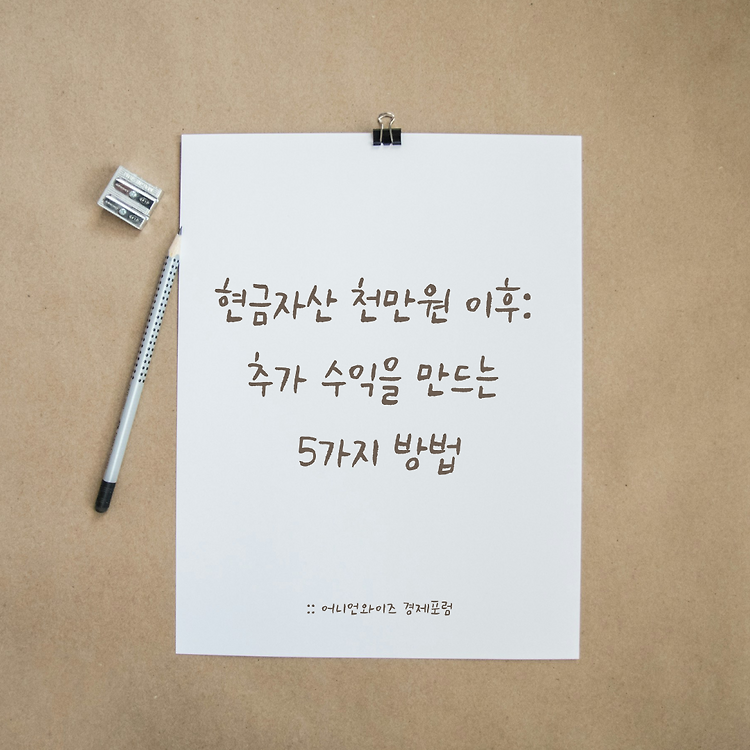 현금자산 천만원 이후:
추가 수익을 만드는
5가지 방법
:: 어니언와이즈 경제포럼